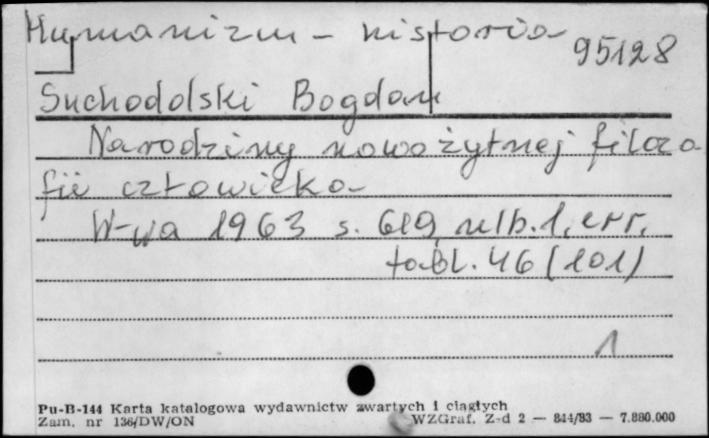 Humanizm - historia
95128
Suchodolski Bogdan
Narodziny nowożytnej filozo
fii człowieka
W-wa 1963 s. 619 nlb. 1, err.
tabl. 46 (101)
1
Pu-B-144 Karta katalogowa wydawnictw zwartych i ciągłych
Zam. nr 136/DW/ON WZGraf. Z-d 2 — 844/83 — 7.880.000